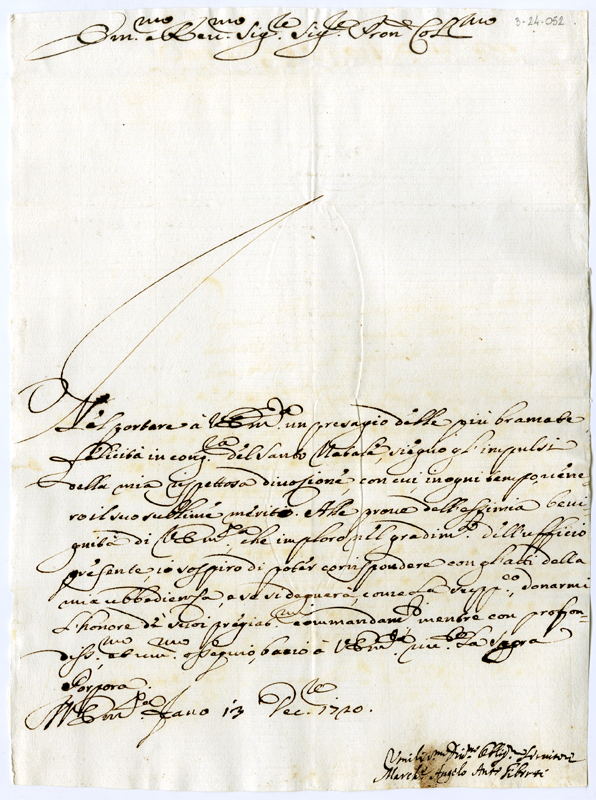 3-24-052
Em.mo e Rev.mo Sig.re Sig.re Pron. Coll.mo
Nel portare à V. Em.za un presagio delle più bramate
felicità in cong.ra del Santo Natale, sieguo gl'impulsi
della mia rispettosa divozione, con cui in ogni tempo vene-
ro il suo sublime merito. Alle prove dell'assima beni
gnità di V. Em.za, che imploro nel gradim.to dell'ufficio
presente, io sospiro di poter corrispondere con gl'atti della
mia ubbedienza, e se si degnerà, come La supp.co, donarmi
l'honore de suoi pregiat.mi commandam.ti mentre con profon-
diss.mo, et um.mo ossequio, bacio à V. Em.za um.te La Sagra
Porpora.
Di V. Em.za Fano 13 Dec.re 1720.
Umiliss.mo Oblig.
March. Angelo Ant.o